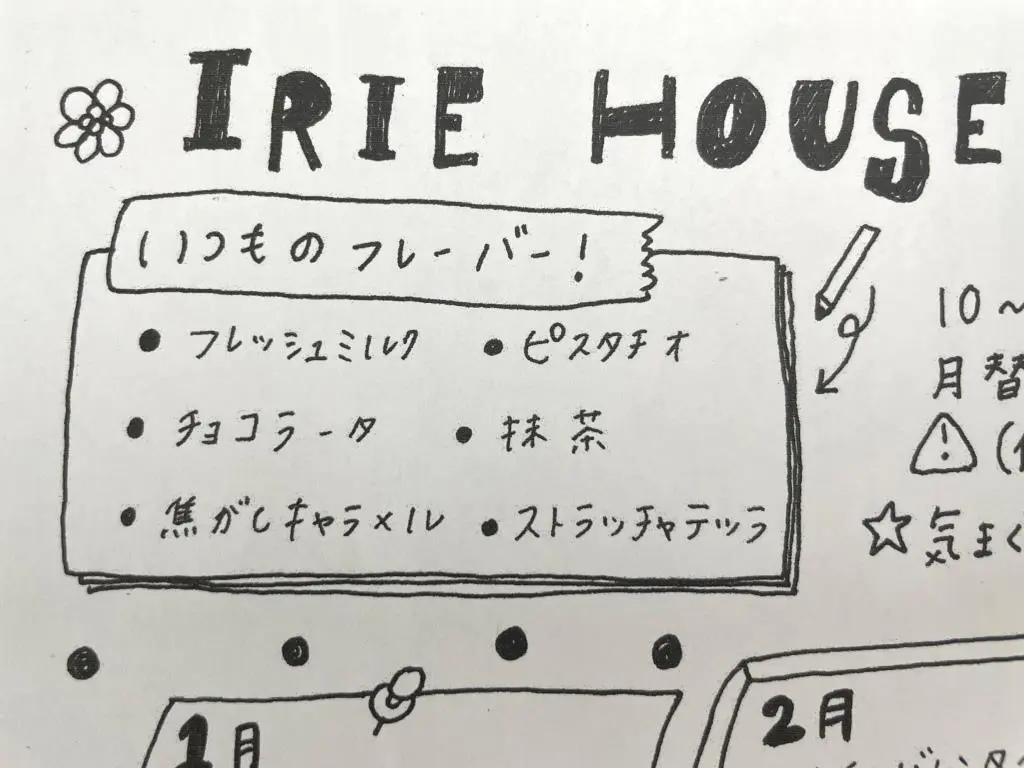 IRIE HOUSE
いつものフレーバー!
・フレッシュミルク ・ピスタチオ
・チョコラータ ・抹茶
・焦がしキャラメル ・ストラッチャテッラ
10～
月替
⚠(
☆気まぐ
1月
2月